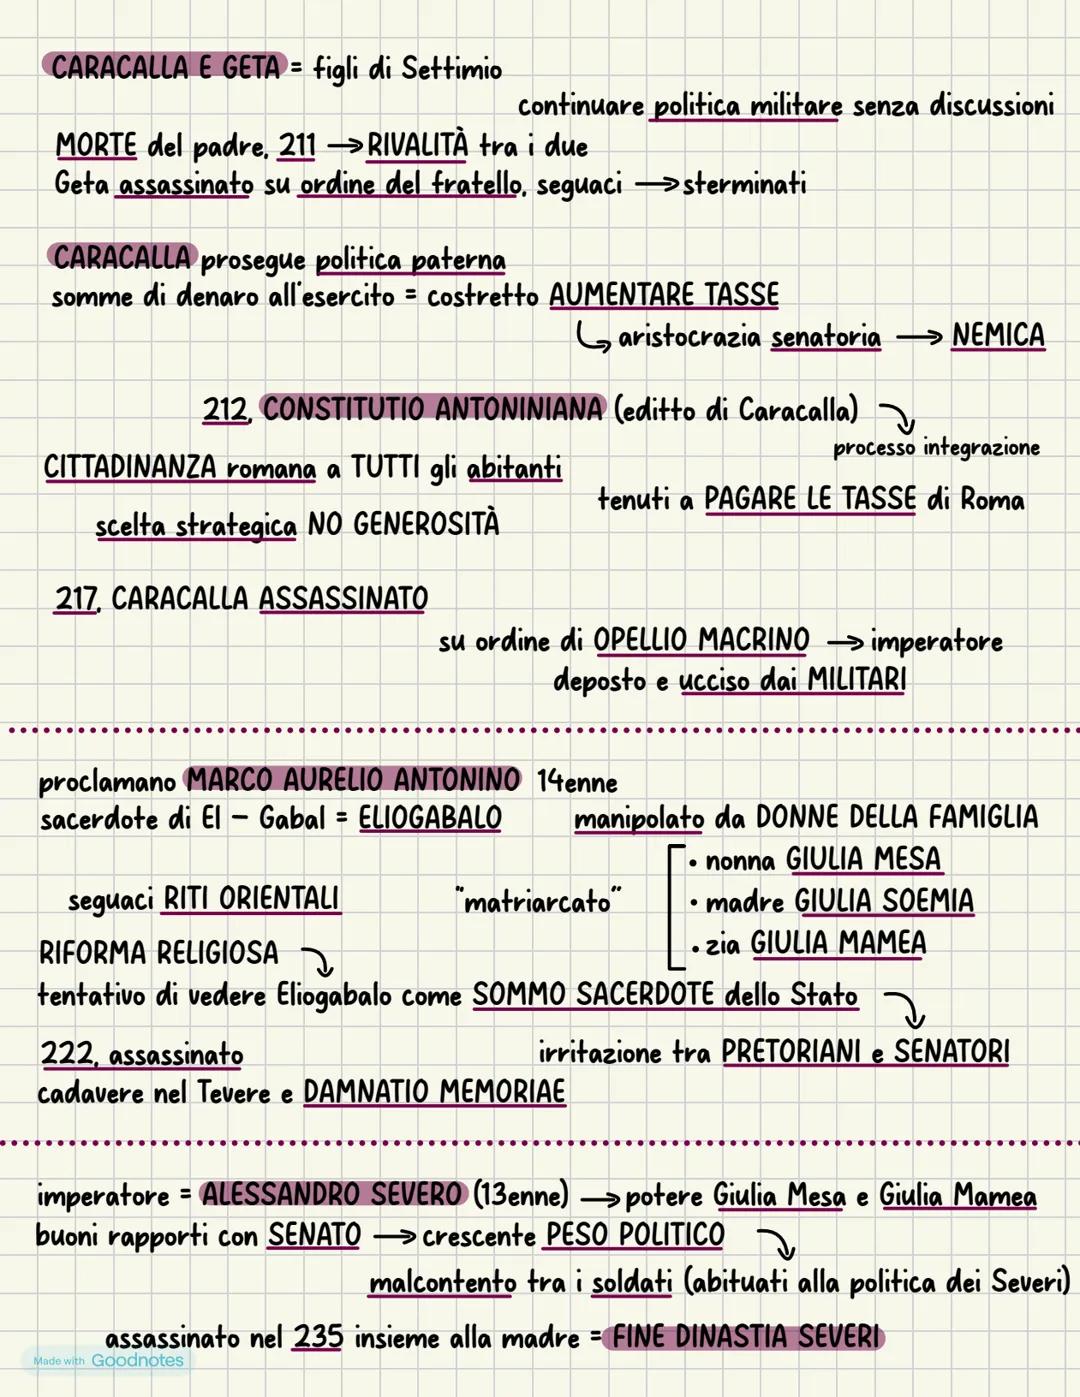 CARACALLA E GETA = figli di Settimio
continuare politica militare senza discussioni
MORTE del padre, 211 → RIVALITÀ tra i due
Geta assassinato su ordine del fratello, seguaci → sterminati
CARACALLA prosegue politica paterna
somme di denaro all'esercito = costretto AUMENTARE TASSE
aristocrazia senatoria → NEMICA
212, CONSTITUTIO ANTONINIANA (editto di Caracalla)
processo integrazione
CITTADINANZA romana a TUTTI gli abitanti
tenuti a PAGARE LE TASSE di Roma
scelta strategica NO GENEROSITÀ
217, CARACALLA ASSASSINATO
su ordine di OPELLIO MACRINO → imperatore
deposto e ucciso dai MILITARI
proclamano MARCO AURELIO ANTONINO 14enne
sacerdote di El – Gabal = ELIOGABALO
manipolato da DONNE DELLA FAMIGLIA
• nonna GIULIA MESA
seguaci RITI ORIENTALI
"matriarcato"
• madre GIULIA SOEMIA
• zia GIULIA MAMEA
RIFORMA RELIGIOSA
tentativo di vedere Eliogabalo come SOMMO SACERDOTE dello Stato
222, assassinato
irritazione tra PRETORIANI e SENATORI
cadavere nel Tevere e DAMNATIO MEMORIAE
imperatore = ALESSANDRO SEVERO (13enne) → potere Giulia Mesa e Giulia Mamea
buoni rapporti con SENATO → crescente PESO POLITICO
malcontento tra i soldati (abituati alla politica dei Severi)
assassinato nel 235 insieme alla madre = FINE DINASTIA SEVERI
Made with Goodnotes